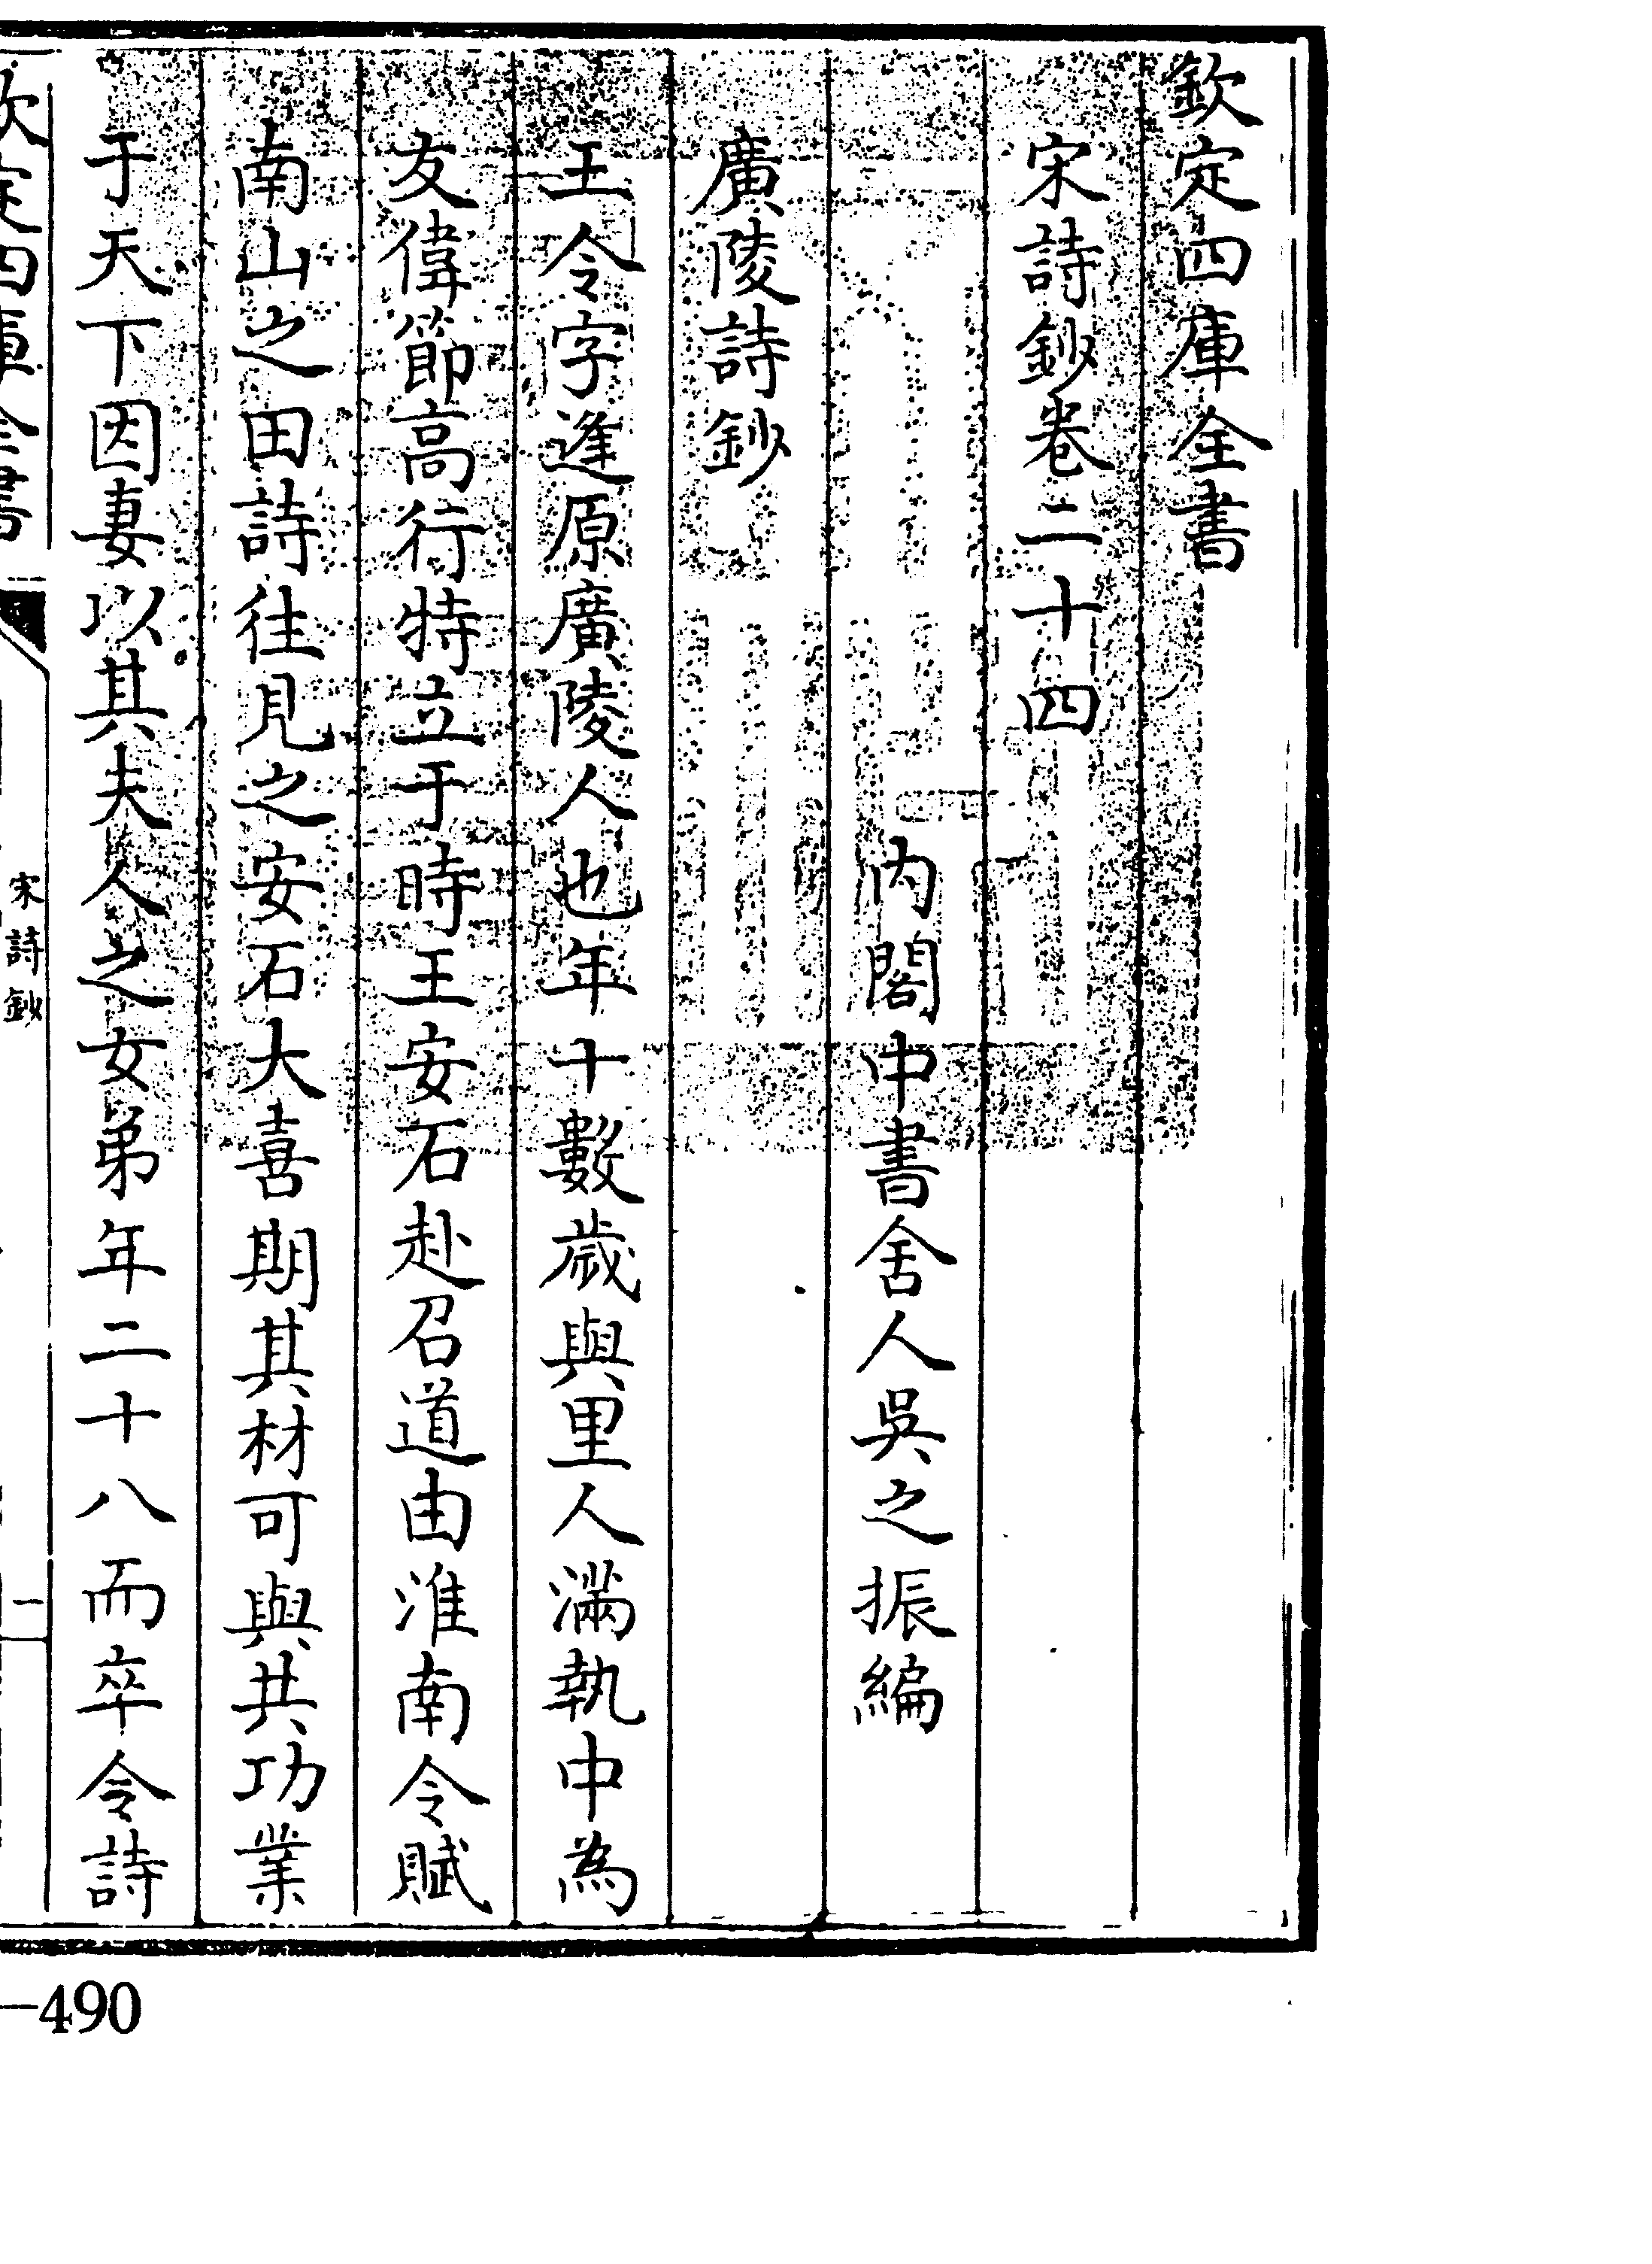 欽定四庫全書
宋詩鈔卷二十四
内閣中書舍人吳之振編
廣陵詩鈔
王令字逢原廣陵人也年十數歲與里人滿執中為
友偉節高行特立于時王安石赴召道由淮南令賦
南山之田詩徃見之安石大喜期其材可與共功業
于天下因妻以其夫人之女弟年二十八而卒令詩
欽定四庫全書
宋詩鈔
一
—490